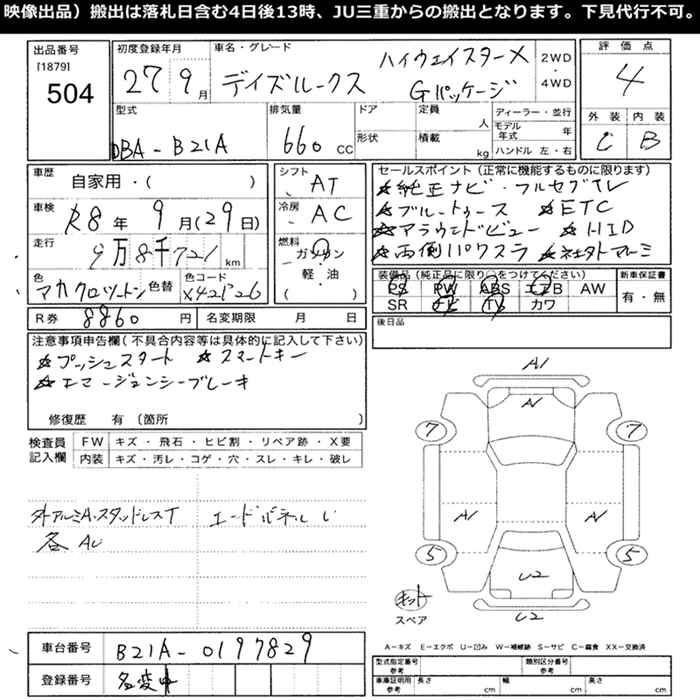 映像出品）搬出は落札日含む4日後13時、JU三重からの搬出となります。下見代行不可。
出品番号
[1879]
504
初度登録年月
27 9月
車名・グレード
デイズルークス
ハイウェイスターX
Gパッケージ
2WD
・
4WD
評価点
4
外装 内装
C B
型式
DBA-B21A
排気量
660 CC
ドア
形状
定員
人
積載
kg
ディーラー・並行
モデル年式 年
ハンドル 左・右
車歴
自家用・( )
車検
R8年 9月(29日)
走行
9万8千721 km
色
マカクロツートン
色替
色コード
X421226
シフト
AT
冷房
AC
燃料
ガソリン
軽・油
( )
セールスポイント（正常に機能するものに限ります）
☆純正ナビ・フルセグTV
☆ブルートゥース ☆ETC
☆アラウンドビュー ☆HID
☆両側パワスラ
装備品（純正品に限り○をつけてください）
PS PW ABS エアB AW
SR ナビ TV カワ
新車保証書
有・無
後日品
R券 8860 円
名変期限 月 日
注意事項申告欄(不具合内容等は具体的に記入して下さい)
☆プッシュスタート ☆スマートキー
☆エマージェンシーブレーキ
修復歴 有（箇所 ）
検査員
記入欄
FW キズ・飛石・ヒビ割・リペア跡・X要
内装 キズ・汚レ・コゲ・穴・スレ・キレ・破レ
外アルミA・スタッドレスT
各AU
A1
A1
7 7
A1 A1
5 5
U2
U2
キット
スペア
A−キズ E−エクボ U−凹み W−補修跡 S−サビ C−腐食 XX−交換済
車台番号 B21A-0197829
登録番号 名変中
型式指定番号
参考
類別区分番号
参考
車庫証明用
参考
長さ cm 幅 cm 高さ cm